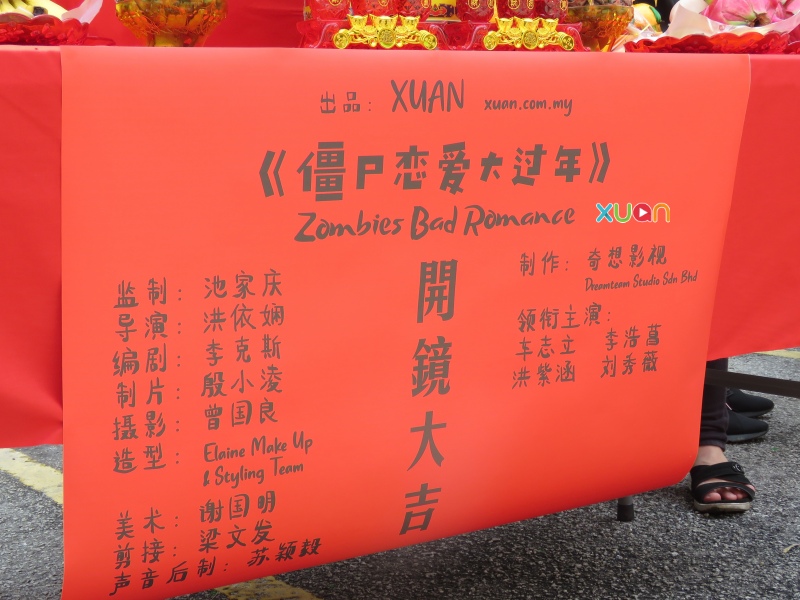 出品: XUAN xuan.com.my
《僵尸恋爱大过年》
Zombies Bad Romance xuan
開鏡大吉
监制: 池家庆
导演: 洪依娴
编剧: 李克斯
制片: 殷小凌
摄影: 曾国良
造型: Elaine Make Up
& Styling Team
美术: 谢国明
剪接: 梁文发
声音后制: 苏颖毅
制作: 奇想影视
Dreamteam Studio Sdn Bhd
领衔主演:
车志立 李浩菖
洪紫涵 刘秀薇